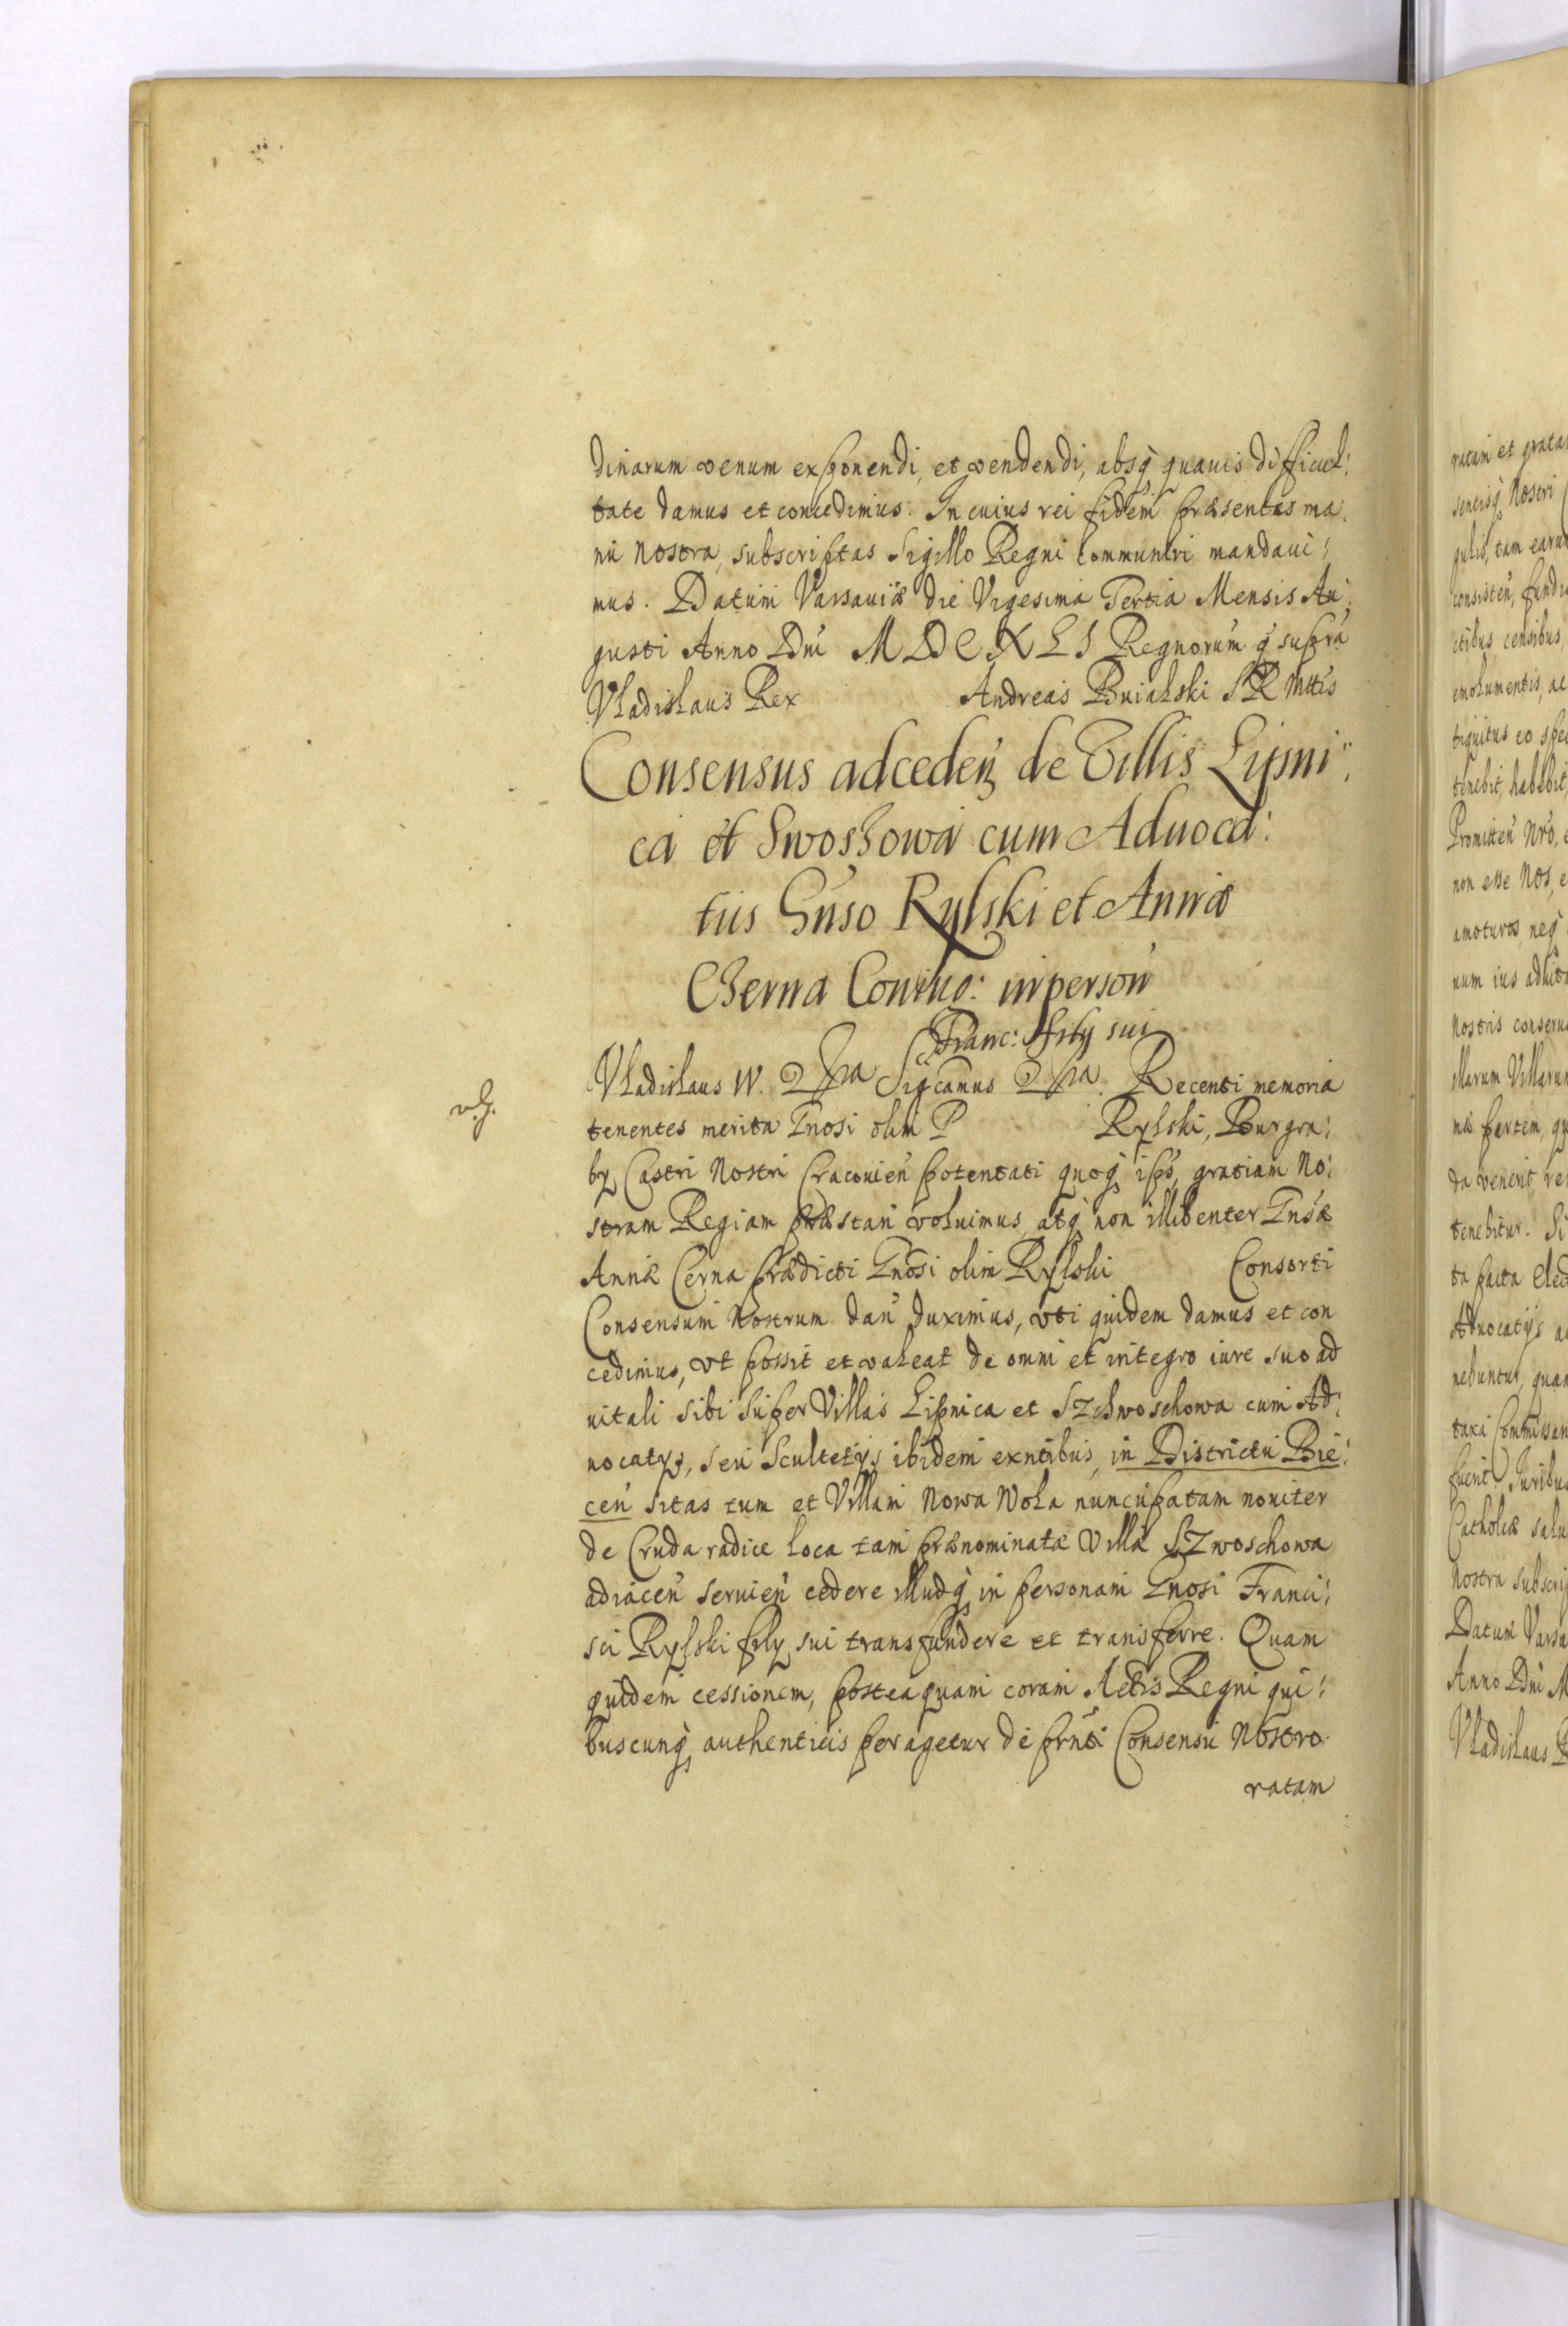 dinarum venum exponendi, et vendendi, absq̀ quauis difficul:
tate damus et concedimus. In cuius rei fidem præsentes ma:
nu Nostra, subscriptas Sigillo Regni communiri mandaui:
mus. Datum Varsauiæ die Vigesima Tertia Mensis Au:
gusti Anno Dni MDCXLI Regnorum q̀ supra
Vladislaus Rex Andreas Bnialski SR Mttis
Consensus ad ceden de Villis Lipni:
ca et Swoshowa cum Aduoca:
tiis Gnso Rylski et Annæ
Cherna Coniug: in person
Franc: Fily sui
Vladislaus IV. Sigcamus Recenti memoria
tenentes merita Gnosi olim P Rylski, Burgra:
by Castri Nostri Cracouien potentati quoq̀ ips, gratiam No:
stram Regiam præstari voluimus, atq̀ non illibenter Gnsæ
Annæ Cerna prædicti Gnosi olim Rylski Consorti
Consensum Nostrum dan duximus, vti quidem damus et con
cedimus, vt possit et valeat de omni et integro iure suo ad
uitali sibi super Villas Lipnica et Szchwoschowa cum Ad:
uocatys, seu Scultetys ibidem exntibus, in Districtu Bie:
cen sitas tum et Villam Nowa Wola nuncupatam nouiter
de Cruda radice loca tam prænominatæ Villæ Szwoschowa
adiacen seruien cedere illudq̀ in personam Gnosi Franci:
sci Rylski fily sui transfundere et transferre. Quam
quidem cessionem, posteaquam coram Actis Regni qui:
buscunq̀ authenticis peragetur de prnti Consensu Nostro
ratam
ratam et grata
sentisq̀ Nostri
gulis, tam earu
consisten, fundi
ctibus, censibus,
emolumentis, ac
tiquitus eo spe
tenebit, habebit,
Promitten Nro, e
non esse Nos, e
amoturos, neq̀
num ius aduit
Nostris conseru
illarum Villaru
næ partem, qu
da venerit re
tenebitur. Si
ta pacta
Aduocatys a
nebuntur, quam
taxa Commissa
fuerit Juribus
Catholicæ salu
Nostra subscri
Datum Varsa
Anno Dni M
Vladislaus R